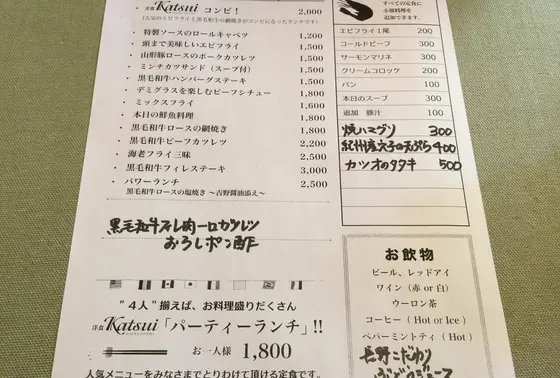 洋食 Katsui コンビ！ 2,000
(人気のエビフライと黒毛和牛の網焼きがコンビになったランチです)
・特製ソースのロールキャベツ 1,200
・頭まで美味しいエビフライ 1,500
・山形豚ロースのポークカツレツ 1,500
・ミンチカツサンド（スープ付） 1,300
・黒毛和牛ハンバーグステーキ 1,500
・デミグラスを楽しむビーフシチュー 1,800
・ミックスフライ 1,600
・本日の鮮魚料理 1,800
・黒毛和牛ロースの網焼き 1,800
・黒毛和牛ビーフカツレツ 2,200
・海老フライ三昧 2,500
・黒毛和牛フィレステーキ 3,000
・パワーランチ 2,500
黒毛和牛ロースの塩焼き ～吉野醤油添え～
黒毛和牛フィレ肉一口カツレツ
おろしポン酢
"４人" 揃えば、お料理盛りだくさん
洋食 Katsui「パーティーランチ」!!
お一人様 1,800
人気メニューをみなさまでとりわけて頂ける定食です。
すべての定食に
小皿料理を
追加できます。
エビフライ１尾 200
コールドビーフ 300
サーモンマリネ 300
クリームコロッケ 200
パン 100
本日のスープ 300
追加 豚汁 100
焼ハマグリ 300
紀州産穴子の天ぷら 400
カツオのタタキ 500
お飲物
ビール、レッドアイ
ワイン（赤 or 白）
ウーロン茶
コーヒー（ Hot or Ice ）
ペパーミントティ（ Hot ）
長野こだわり